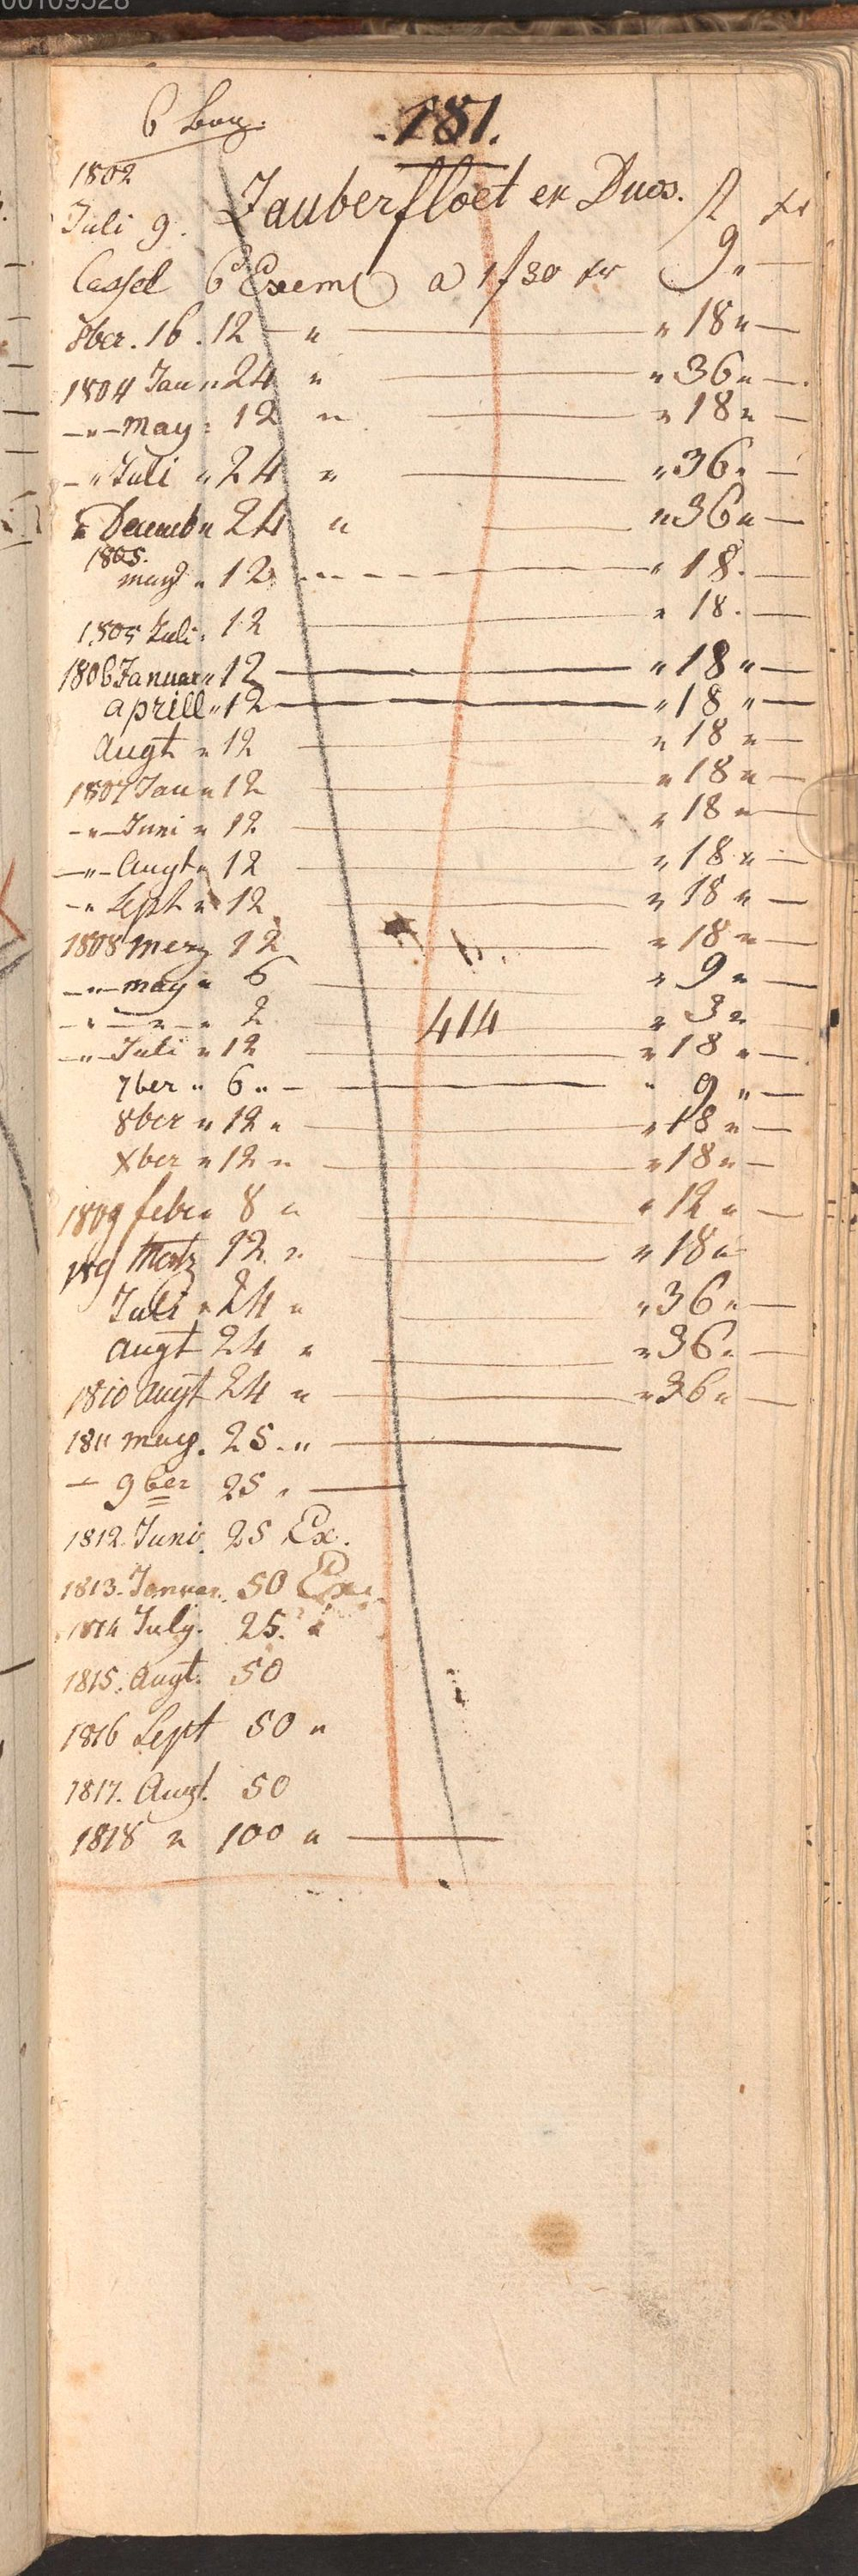 00109528
6 Bog.
181.
1802
Juli 9. Zauberfloet en Duos. fl xr
Cassel 6 Exempl a 1f 30 xr 9 „ —
8ber. 16. 12 — „ — „ 18 „ —
1804 Jan „ 24 „ — „ 36 „ —
— „ — may „ 12 „ — „ 18 „ —
— „ Juli „ 24 „ — „ 36 „ —
„ Decemb „ 24 „ — „ 36 „ —
1805.
may „ 12 „ — „ 18. —
1805 Juli. 12 — „ 18. —
1806 Januar „ 12 — „ 18 „ —
aprill „ 12 — „ 18 „ —
Augt „ 12 — „ 18 „ —
1807 Jan „ 12 — „ 18 „ —
— „ — Juni „ 12 — „ 18 „ —
— „ — Augt „ 12 — „ 18 „ —
— „ Sept „ 12 — „ 18 „ —
1808 Merz 12 — „ 18 „ —
— „ — may „ 6 — „ 9 „ —
— „ — „ — „ 2 — 414 „ 3 „
— „ Juli „ 12 — „ 18 „ —
7ber „ 6 „ — „ 9 „ —
8ber „ 12 „ — „ 18 „ —
Xber „ 12 „ — „ 18 „ —
1809 febr „ 8 „ — „ 12 „ —
Mertz 12 „ — „ 18 „
Juli „ 24 „ — „ 36 „ —
Augt 24 „ — „ 36 „ —
1810 Augt 24 „ — „ 36 „ —
1811 may. 25 „ —
— 9ber 25 „ —
1812. Juni. 25 Ex.
1813. Januar. 50 Ex.
1814 July. 25. „
1815. Augt. 50
1816 Sept 50 „
1817. Augt. 50
1818 „ 100 „ —